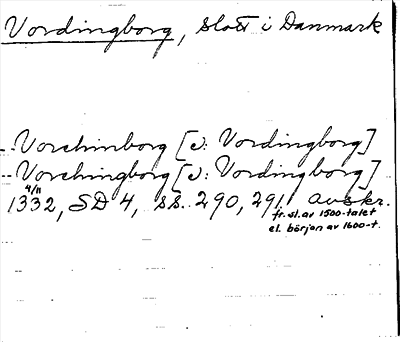 Vordingborg, slott i Danmark
-- Vorchinborg [ɔ: Vordingborg]
-- Vorchingborg [ɔ: Vordingborg]
4/11
1332, SD 4, ss. 290, 291, avskr.
fr. sl. av 1500-talet
el. början av 1600-t.